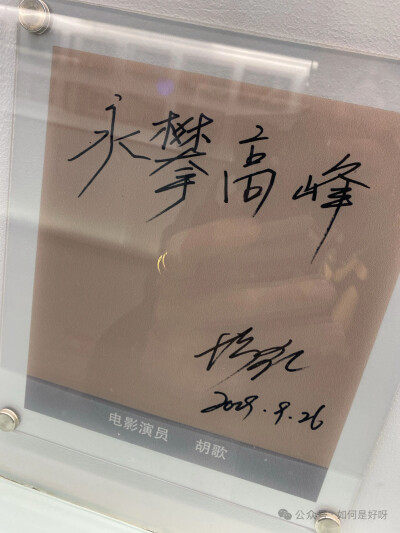 永攀高峰
胡歌
2029.9.26
电影演员 胡歌
公众号·如何是好呀